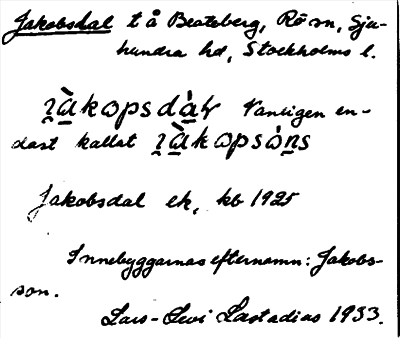 Jakobsdal t å Beateberg, Rö sn, Sju-
hundra hd, Stockholms l.
Vanligen en-
dast kallat
Jakobsdal ek, kb 1925
Innebyggarnas efternamn: Jakobs-
son.
Lars-Levi Læstadius 1933.